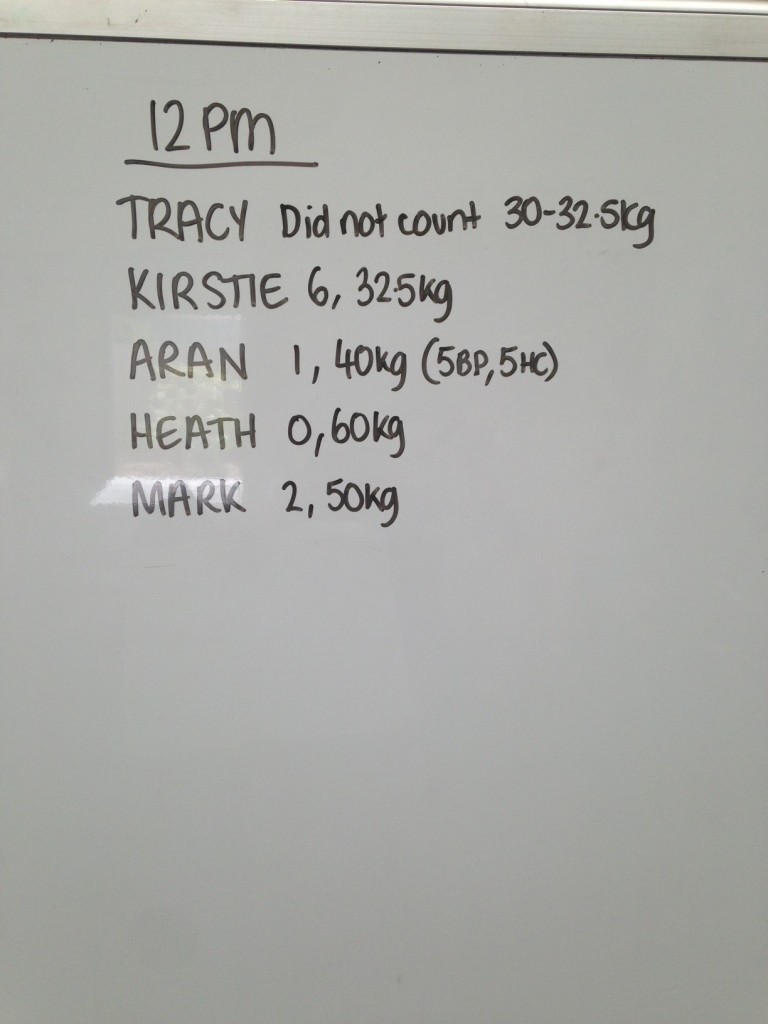 12 PM
TRACY Did not count 30-32.5kg
KIRSTIE 6, 32.5kg
ARAN 1, 40kg (5BP, 5HC)
HEATH 0, 60kg
MARK 2, 50kg